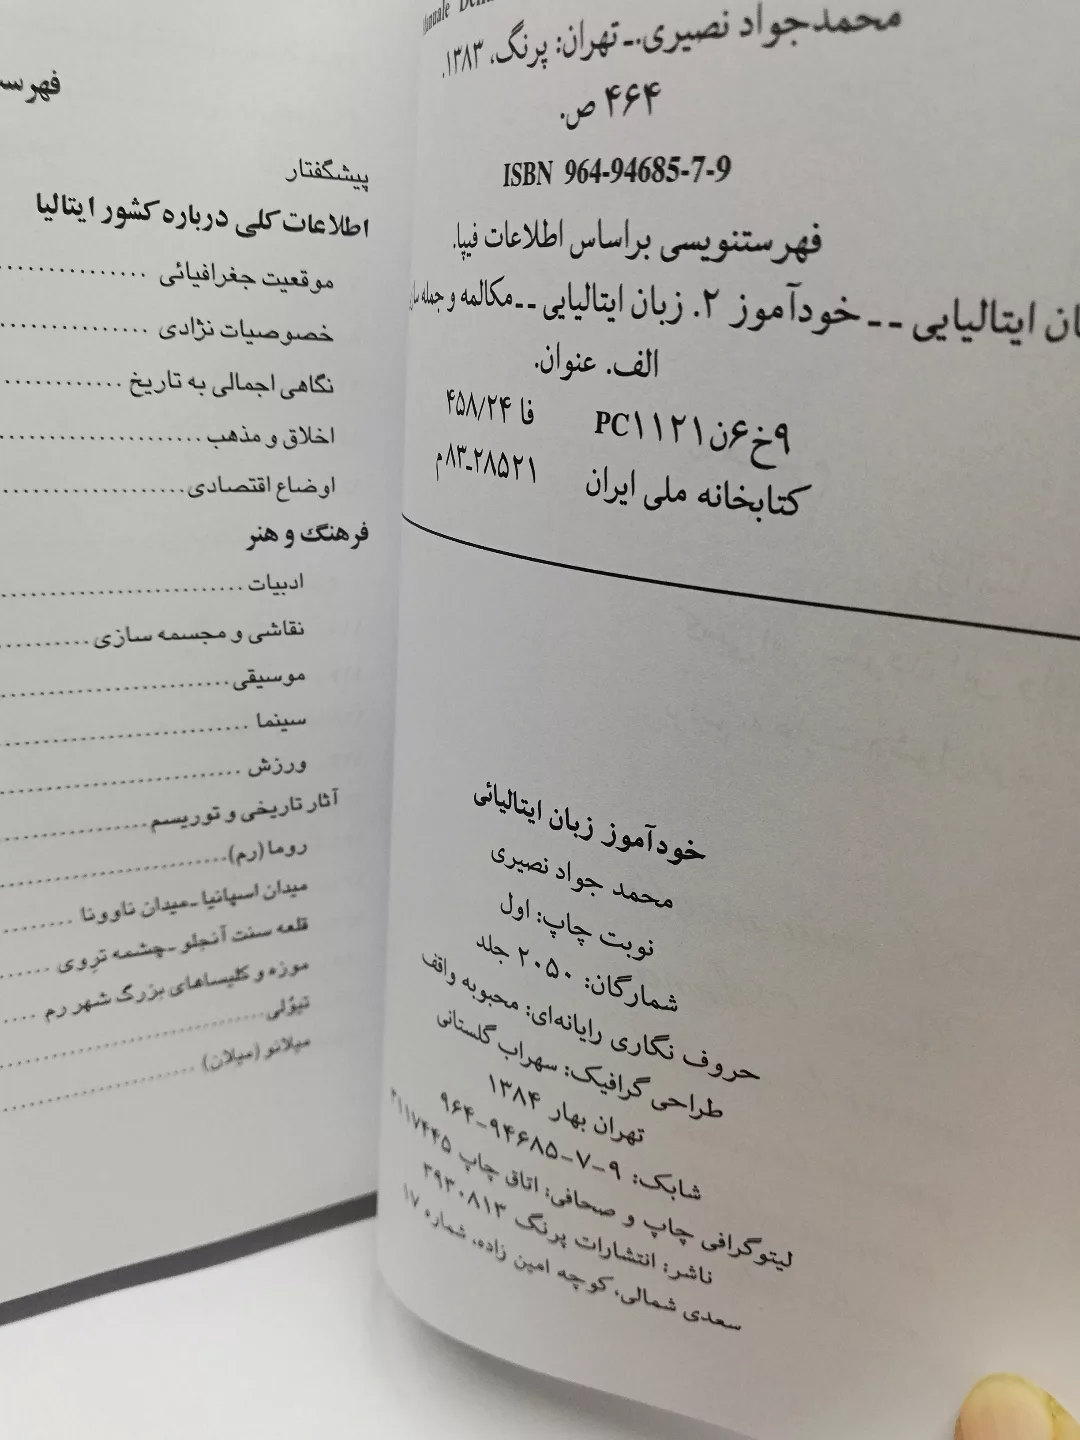 محمدجواد نصیری.ـ تهران: پرنگ، ۱۳۸۳.
۴۶۴ ص.
ISBN 964-94685-7-9
فهرستنویسی براساس اطلاعات فیپا.
ان ایتالیایی -- خودآموز ۲. زبان ایتالیایی -- مکالمه و جمله
الف. عنوان.
۹خ۶ن/PC۱۱۲۱ فا ۴۵۸/۲۴
کتابخانه ملی ایران ۲۸۵۲۱ـ۸۳م
خودآموز زبان ایتالیائی
محمد جواد نصیری
نوبت چاپ: اول
شمارگان: ۲۰۵۰ جلد
حروف نگاری رایانه‌ای: محبوبه واقف
طراحی گرافیک: سهراب گلستانی
تهران بهار ۱۳۸۴
شابک: ۹-۷-۹۴۶۸۵-۹۶۴
لیتوگرافی چاپ و صحافی: اتاق چاپ ۲۱۱۷۴۴۵
ناشر: انتشارات پرنگ ۳۹۳۰۸۱۳
سعدی شمالی، کوچه امین زاده، شماره ۱۷
پیشگفتار
اطلاعات کلی درباره کشور ایتالیا
موقعیت جغرافیائی
خصوصیات نژادی
نگاهی اجمالی به تاریخ
اخلاق و مذهب
اوضاع اقتصادی
فرهنگ و هنر
ادبیات
نقاشی و مجسمه سازی
موسیقی
سینما
ورزش
آثار تاریخی و توریسم
روما (رم)
میدان اسپانیا ـ میدان ناوونا
قلعه سنت آنجلو ـ چشمه تروی
موزه و کلیساهای بزرگ شهر رم
تیوُلی
میلانو (میلان)